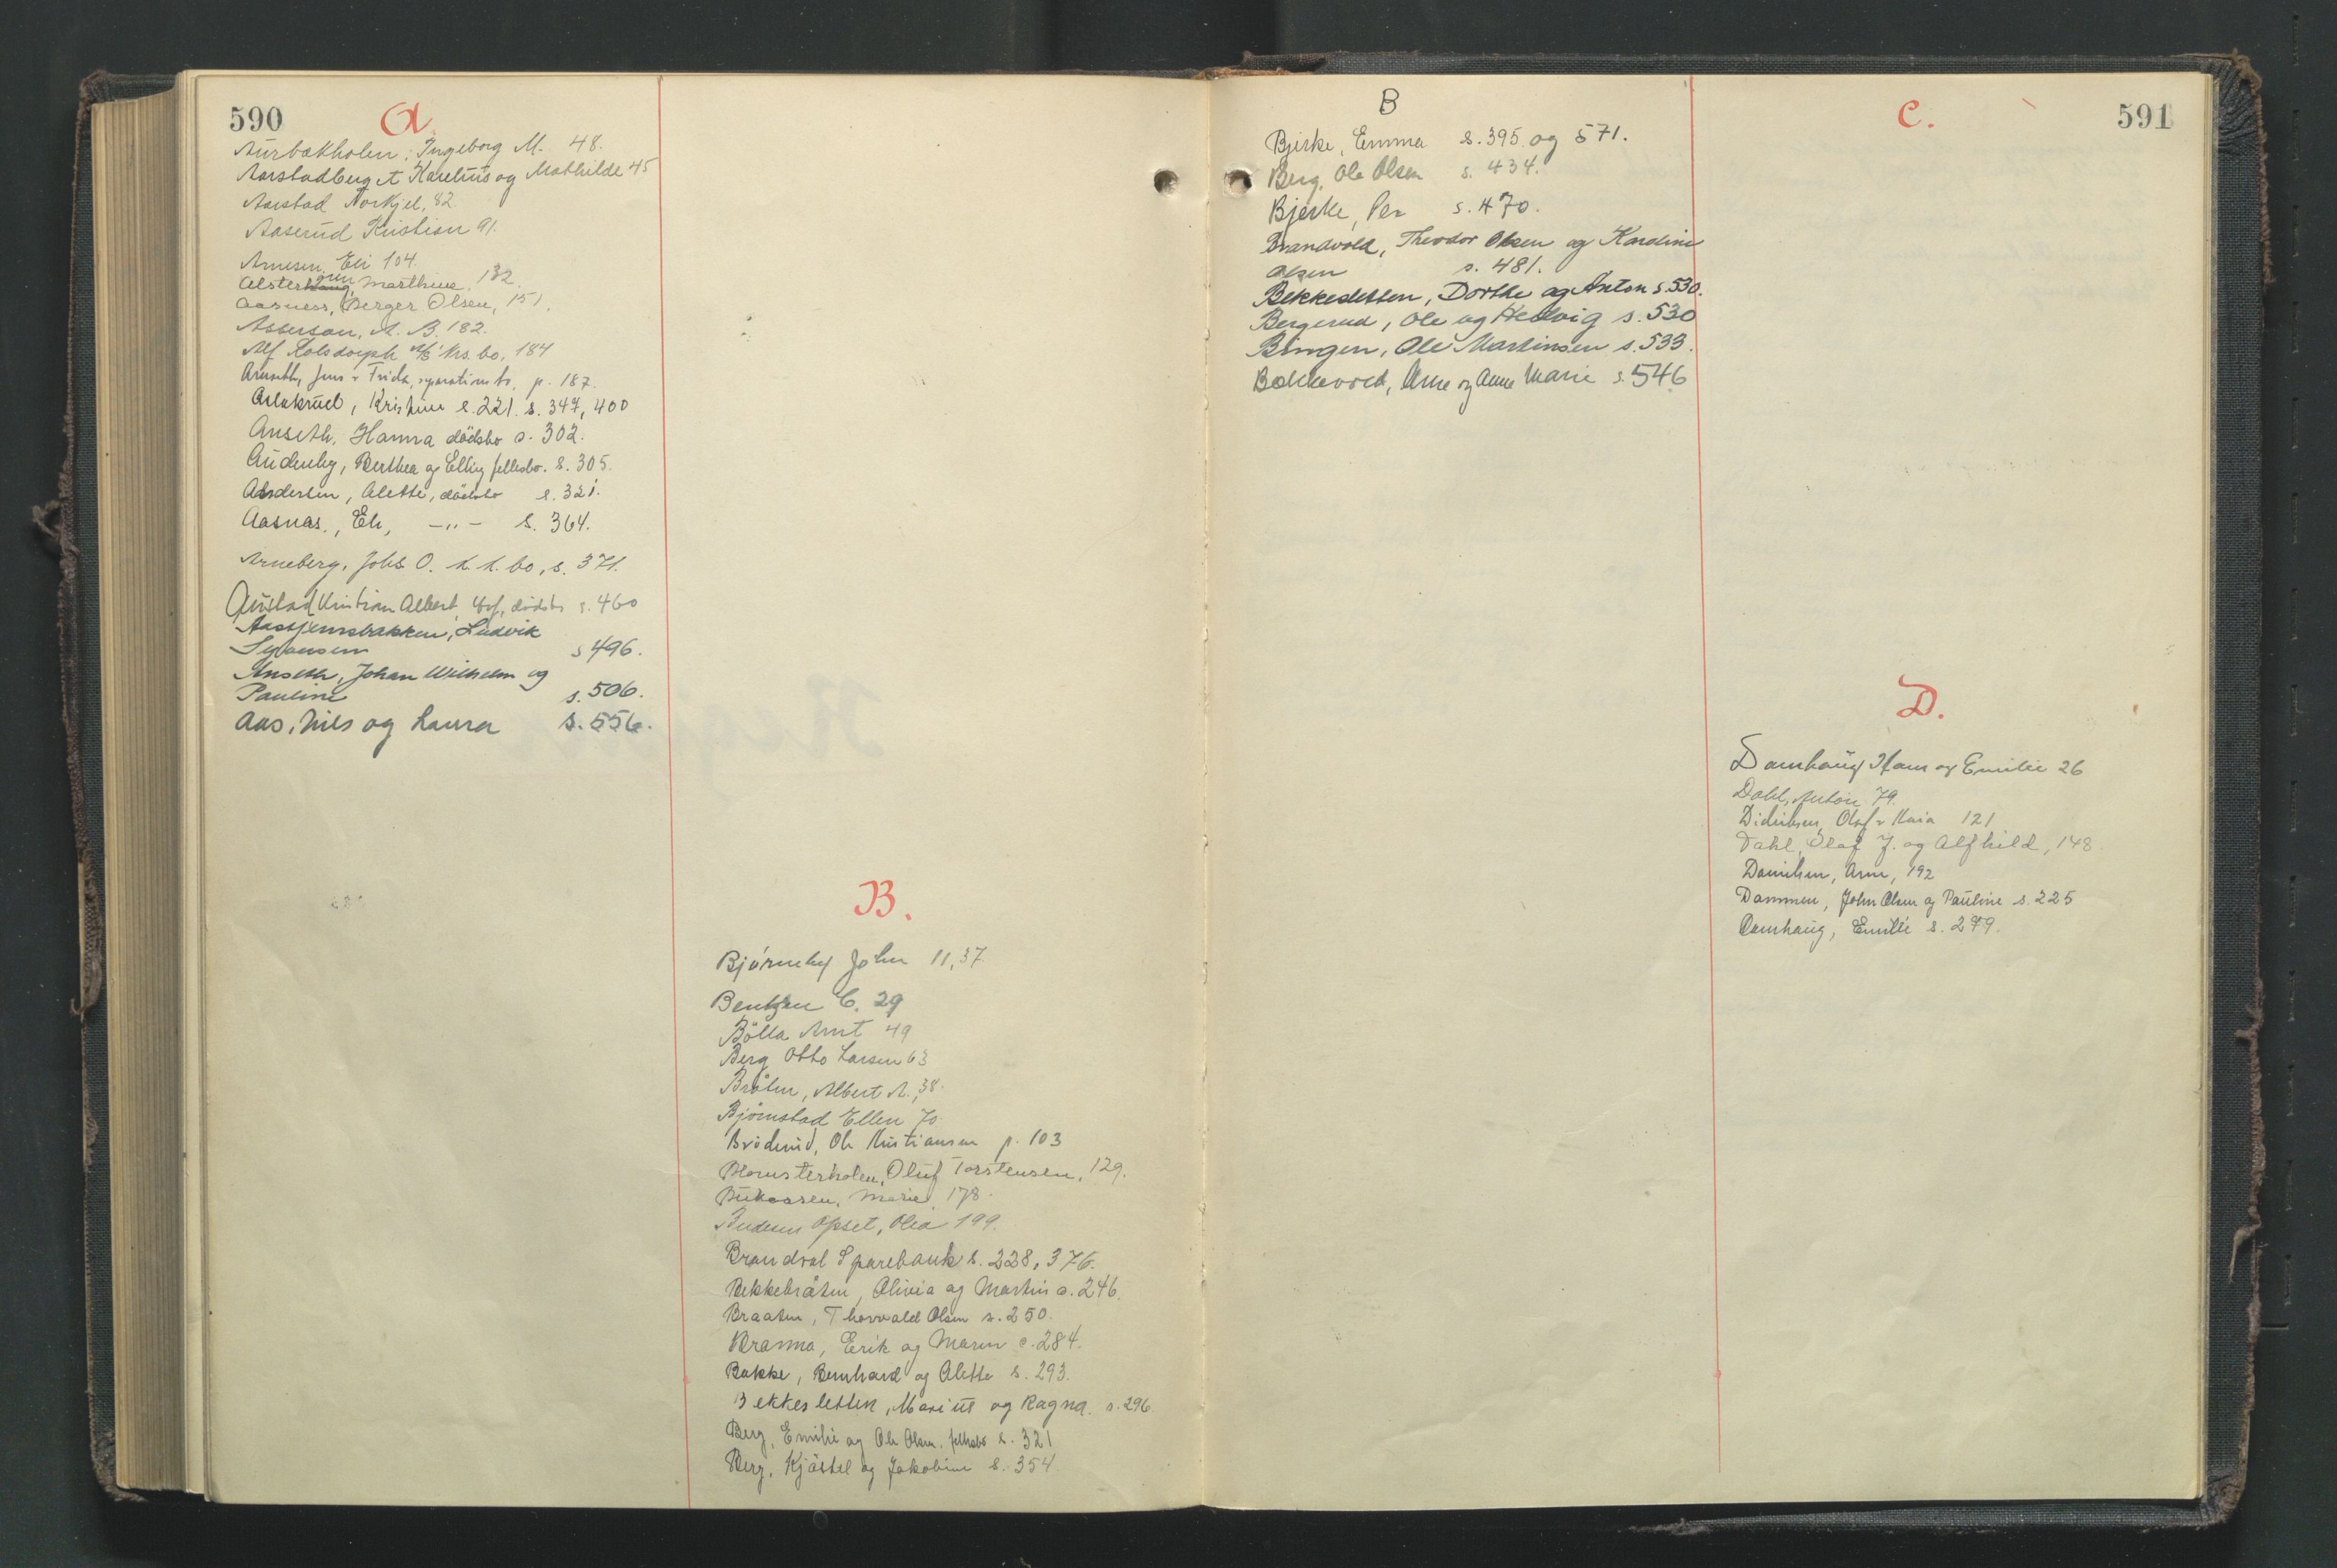 590
A.
Aurbakholen, Ingeborg M. 48.
Aarstadberget Karelius og Mathilde 45
Aarstad Norkjel, 82.
Aaserud Kristian 91.
Arnesen, Eli 104.
Alster Marthine, 132.
Aasness, Berger Olsen, 151.
Asserson, A. B. 182.
Alf Kolsdorph A/S krs. bo, 184
Anseth, Jens & Frida, separationsbo, p. 187.
Kristine s. 221. s. 347, 400
Anseth, Hanna dödsbo s. 302.
Audenby, Berthea og Elling fellesbo. s. 305.
Andersen, Alette, dödsbo s. 321.
Aasnas, Eli, -"- s. 364.
Arneberg, Johs O. k. k. bo, s. 371.
Austad Kristian Albert dödsbo s. 460
Aastjernsbakken, Ludvik
Syversen s 496.
Anseth, Johan Wilhelm og
Pauline s. 506.
Aas, Nils og Laura s. 556.
B.
Bjørneby John 11, 37
Bentzen C. 29
Bölla Arnt 49
Berg Otto Larsen 63
Bråten, Albert A., 38.
Bjørnstad Ellen 70
Bröderud, Ole Kristiansen p. 103
Blomsterholen, Oluf Torstensen, 129.
Bukaasen, Marie, 178.
Opset, Olea 199.
Brandval Sparebank s. 228, 376.
Bekkebråten, Olivia og Martin s. 246.
Braaten, Thorvald Olsen s. 250.
Branna, Erik og Maren s. 284.
Bakke, Bernhard og Alette s. 293.
Bekkesletten, Marius og Ragna. s. 296.
Berg, Emilie og Ole Olsen. fellesbo s. 321
Berg, Kjästel og Jakobine s. 354
B
Bjerke, Emma s. 395. og 571.
Berg, Ole Olsen s. 434.
Bjerke, Per s. 470.
Brandvold, Theodor Olsen og Karoline
Olsen s. 481.
Bekkesletten, Dorthe og Anton s. 530.
Bergerud, Ole og Hedvig s. 530
Bingen, Ole Martinsen s. 533.
Bakkevold, Arne og Anne Marie s. 546
C.
591
D.
Damhaug Hans og Emilie 26
Dahl, Anton 79.
Dideriksen, Olaf & Kaia 121
Dahl, Olaf J. og Alfhild, 148.
Danielsen, Arne, 192
Dammen, John Olsen og Pauline s. 225
Damhaug, Emilie s. 279.